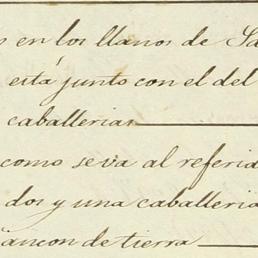 s en los llanos de Sa
está junto con el del
caballerias
como se va al referid
dos y una caballeria
ancon de tierra